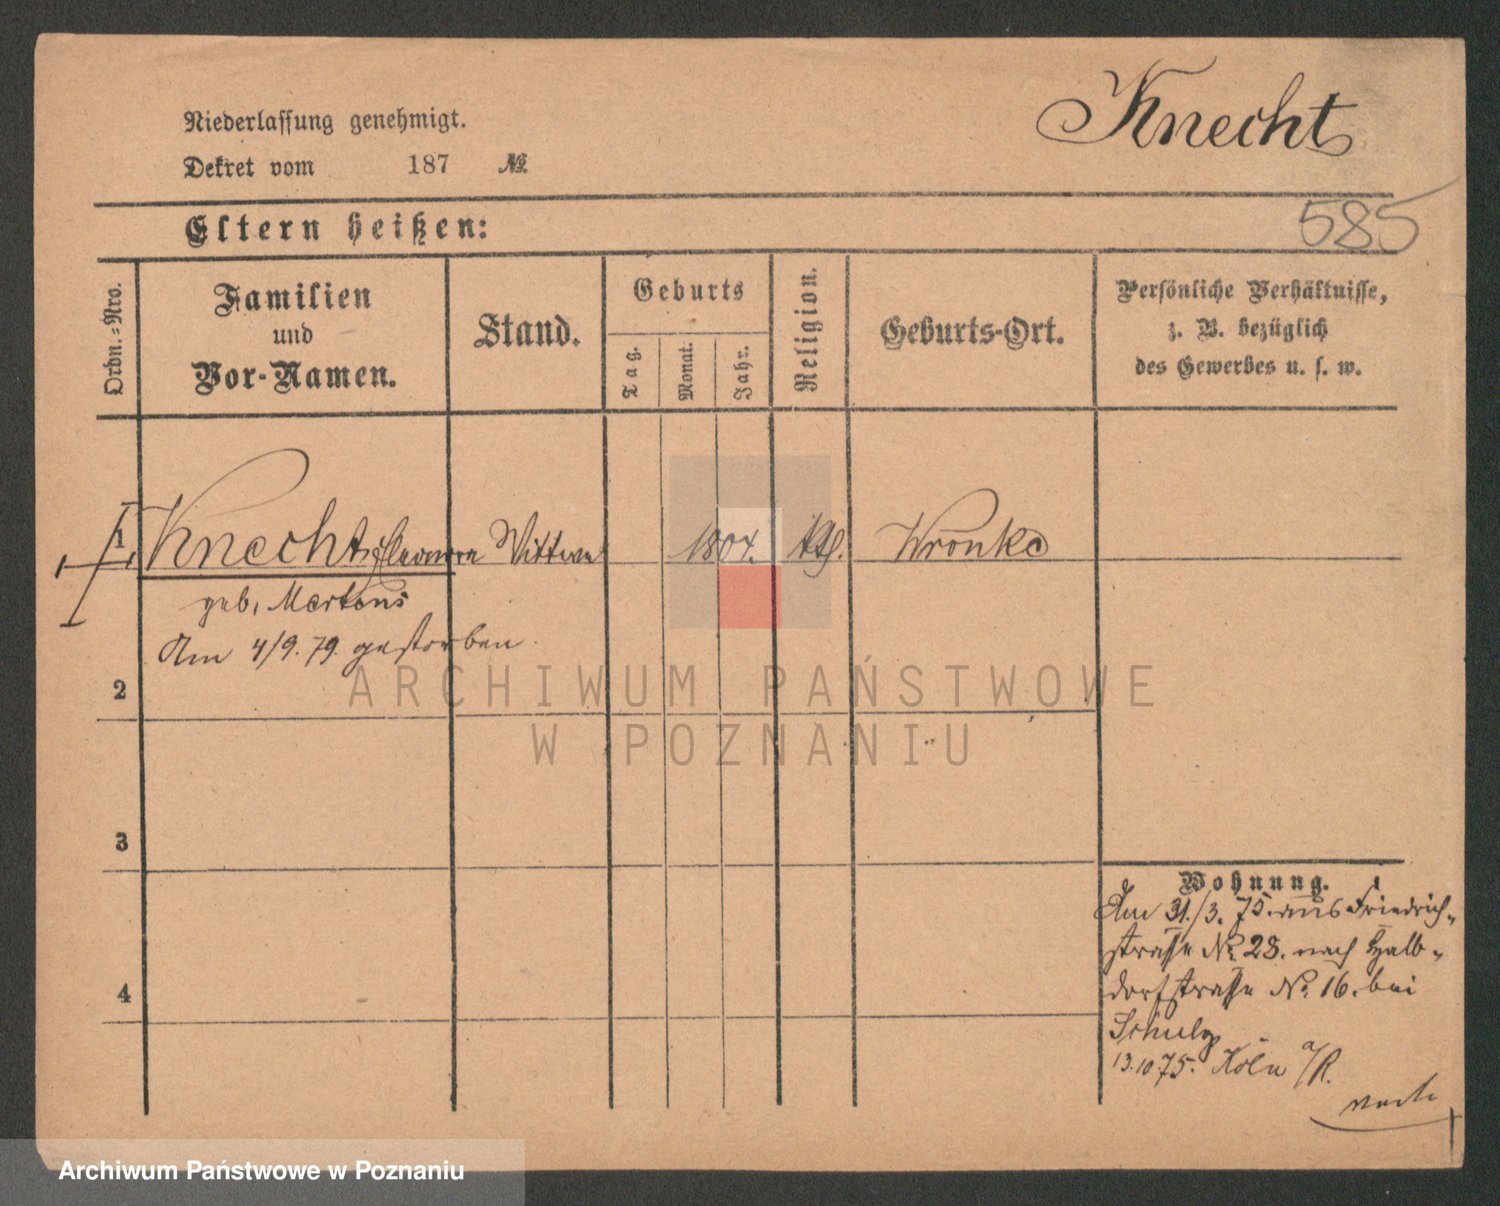 Knecht
Niederlassung genehmigt.
Dekret vom 187 №
585
Eltern heißen:
Ordn.=Nro.
Familien
und
Vor-Namen.
Stand.
Geburts
Tag.
Monat.
Jahr.
Religion.
Geburts-Ort.
Persönliche Verhältnisse,
z. B. bezüglich
des Gewerbes u. s. w.
1 Knecht, Eleonora Wittwe 1804. kth. Wronke
geb. Mertens
Am 4/9. 79. gestorben
2
ARCHIWUM PAŃSTWOWE
W POZNANIU
3
4
Wohnung.
Am 31./3. 75. aus Friedrich-
strasse № 28. nach Halb-
dorfstrasse № 16. bei
Schulz
13.10.75. Köln a/R.
Archiwum Państwowe w Poznaniu